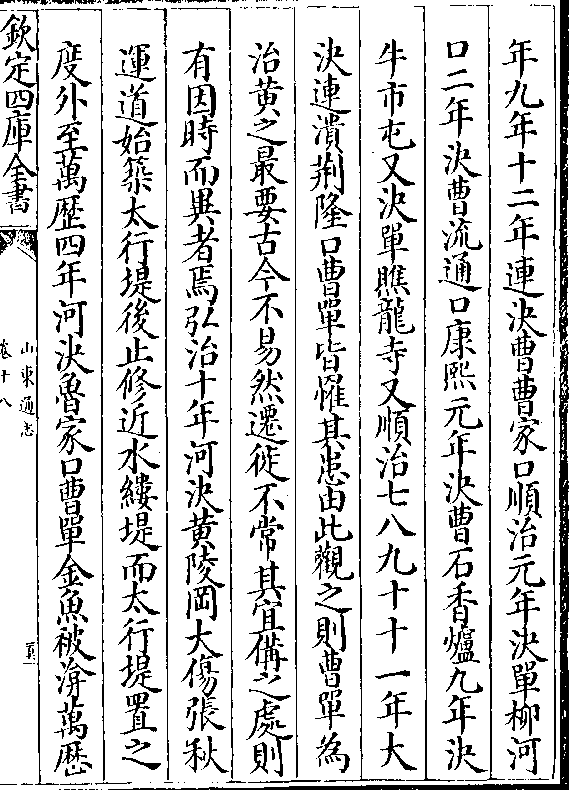 年九年十二年連決曹曹家口順治元年決單柳河
口二年決曹流通口康熙元年決曹石香爐九年決
牛市屯又決單瞧龍寺又順治七八九十十一年大
決連潰荆隆口曹單皆懼其患由此觀之則曹單為
治黄之最要古今不易然遷徙不常其宜備之處則
有因時而異者焉弘治十年河決黄陵岡大傷張秋
運道始築太行堤後止修近水縷堤而太行堤置之
度外至萬歷四年河決魯家口曹單金魚被渰萬歷
欽定四庫全書
山東通志
卷十八